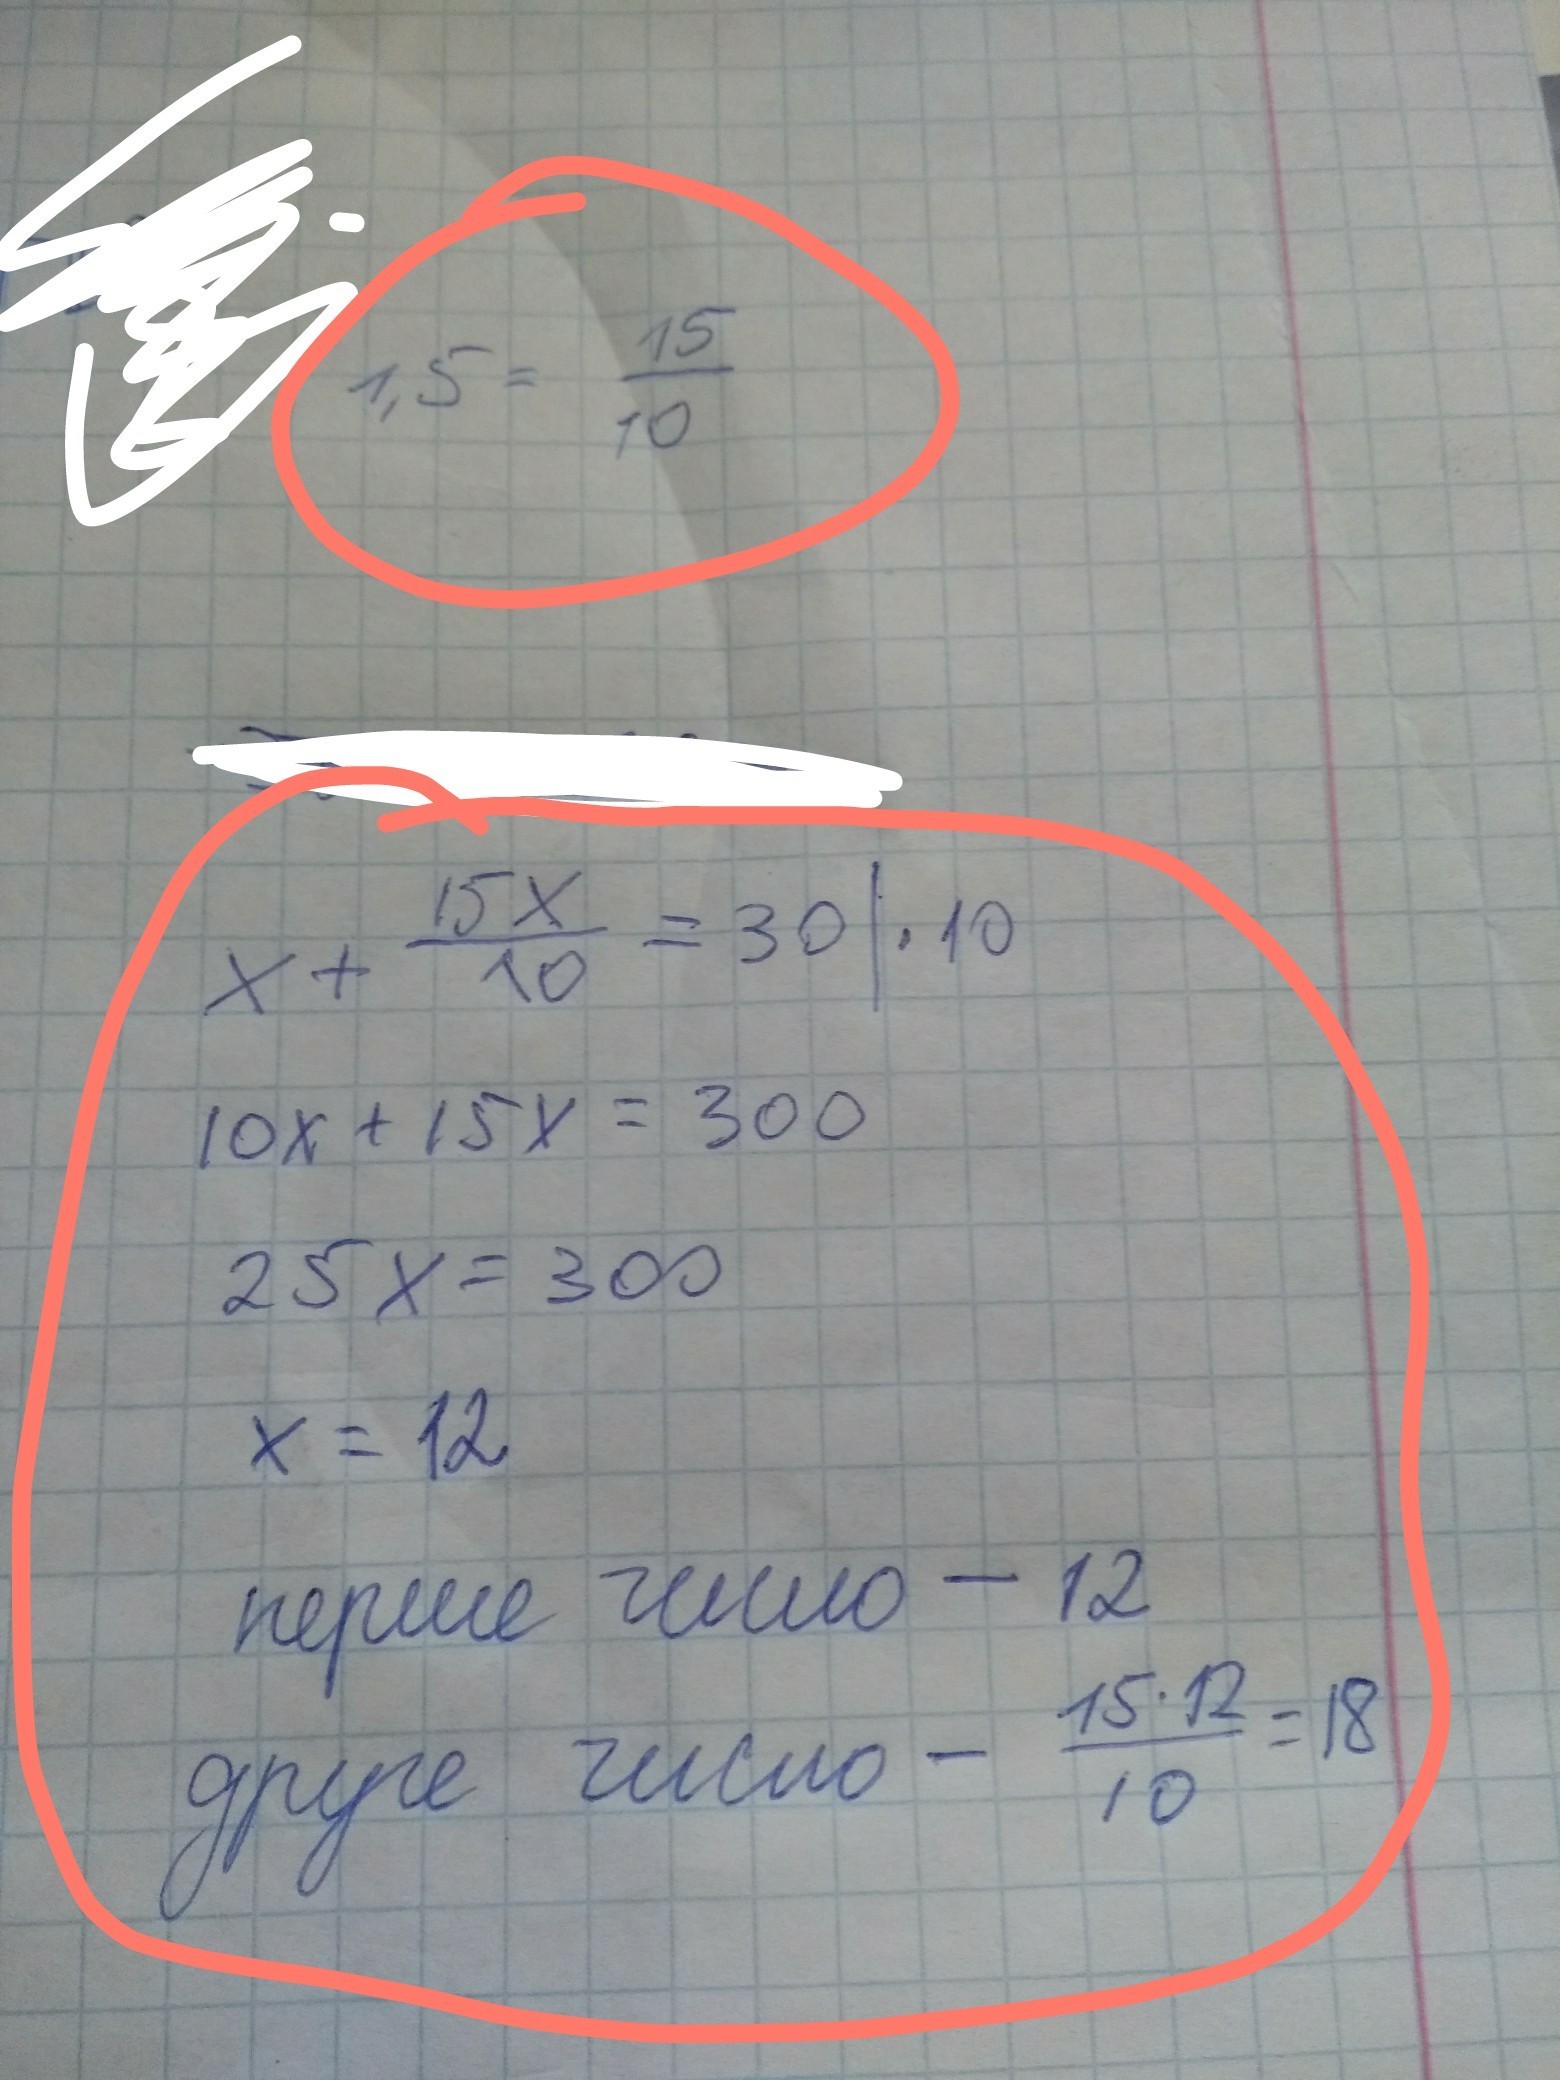 1,5 = 15/10
x + 15x/10 = 30 | · 10
10x + 15x = 300
25x = 300
x = 12
перше число – 12
друге число – 15·12/10 = 18